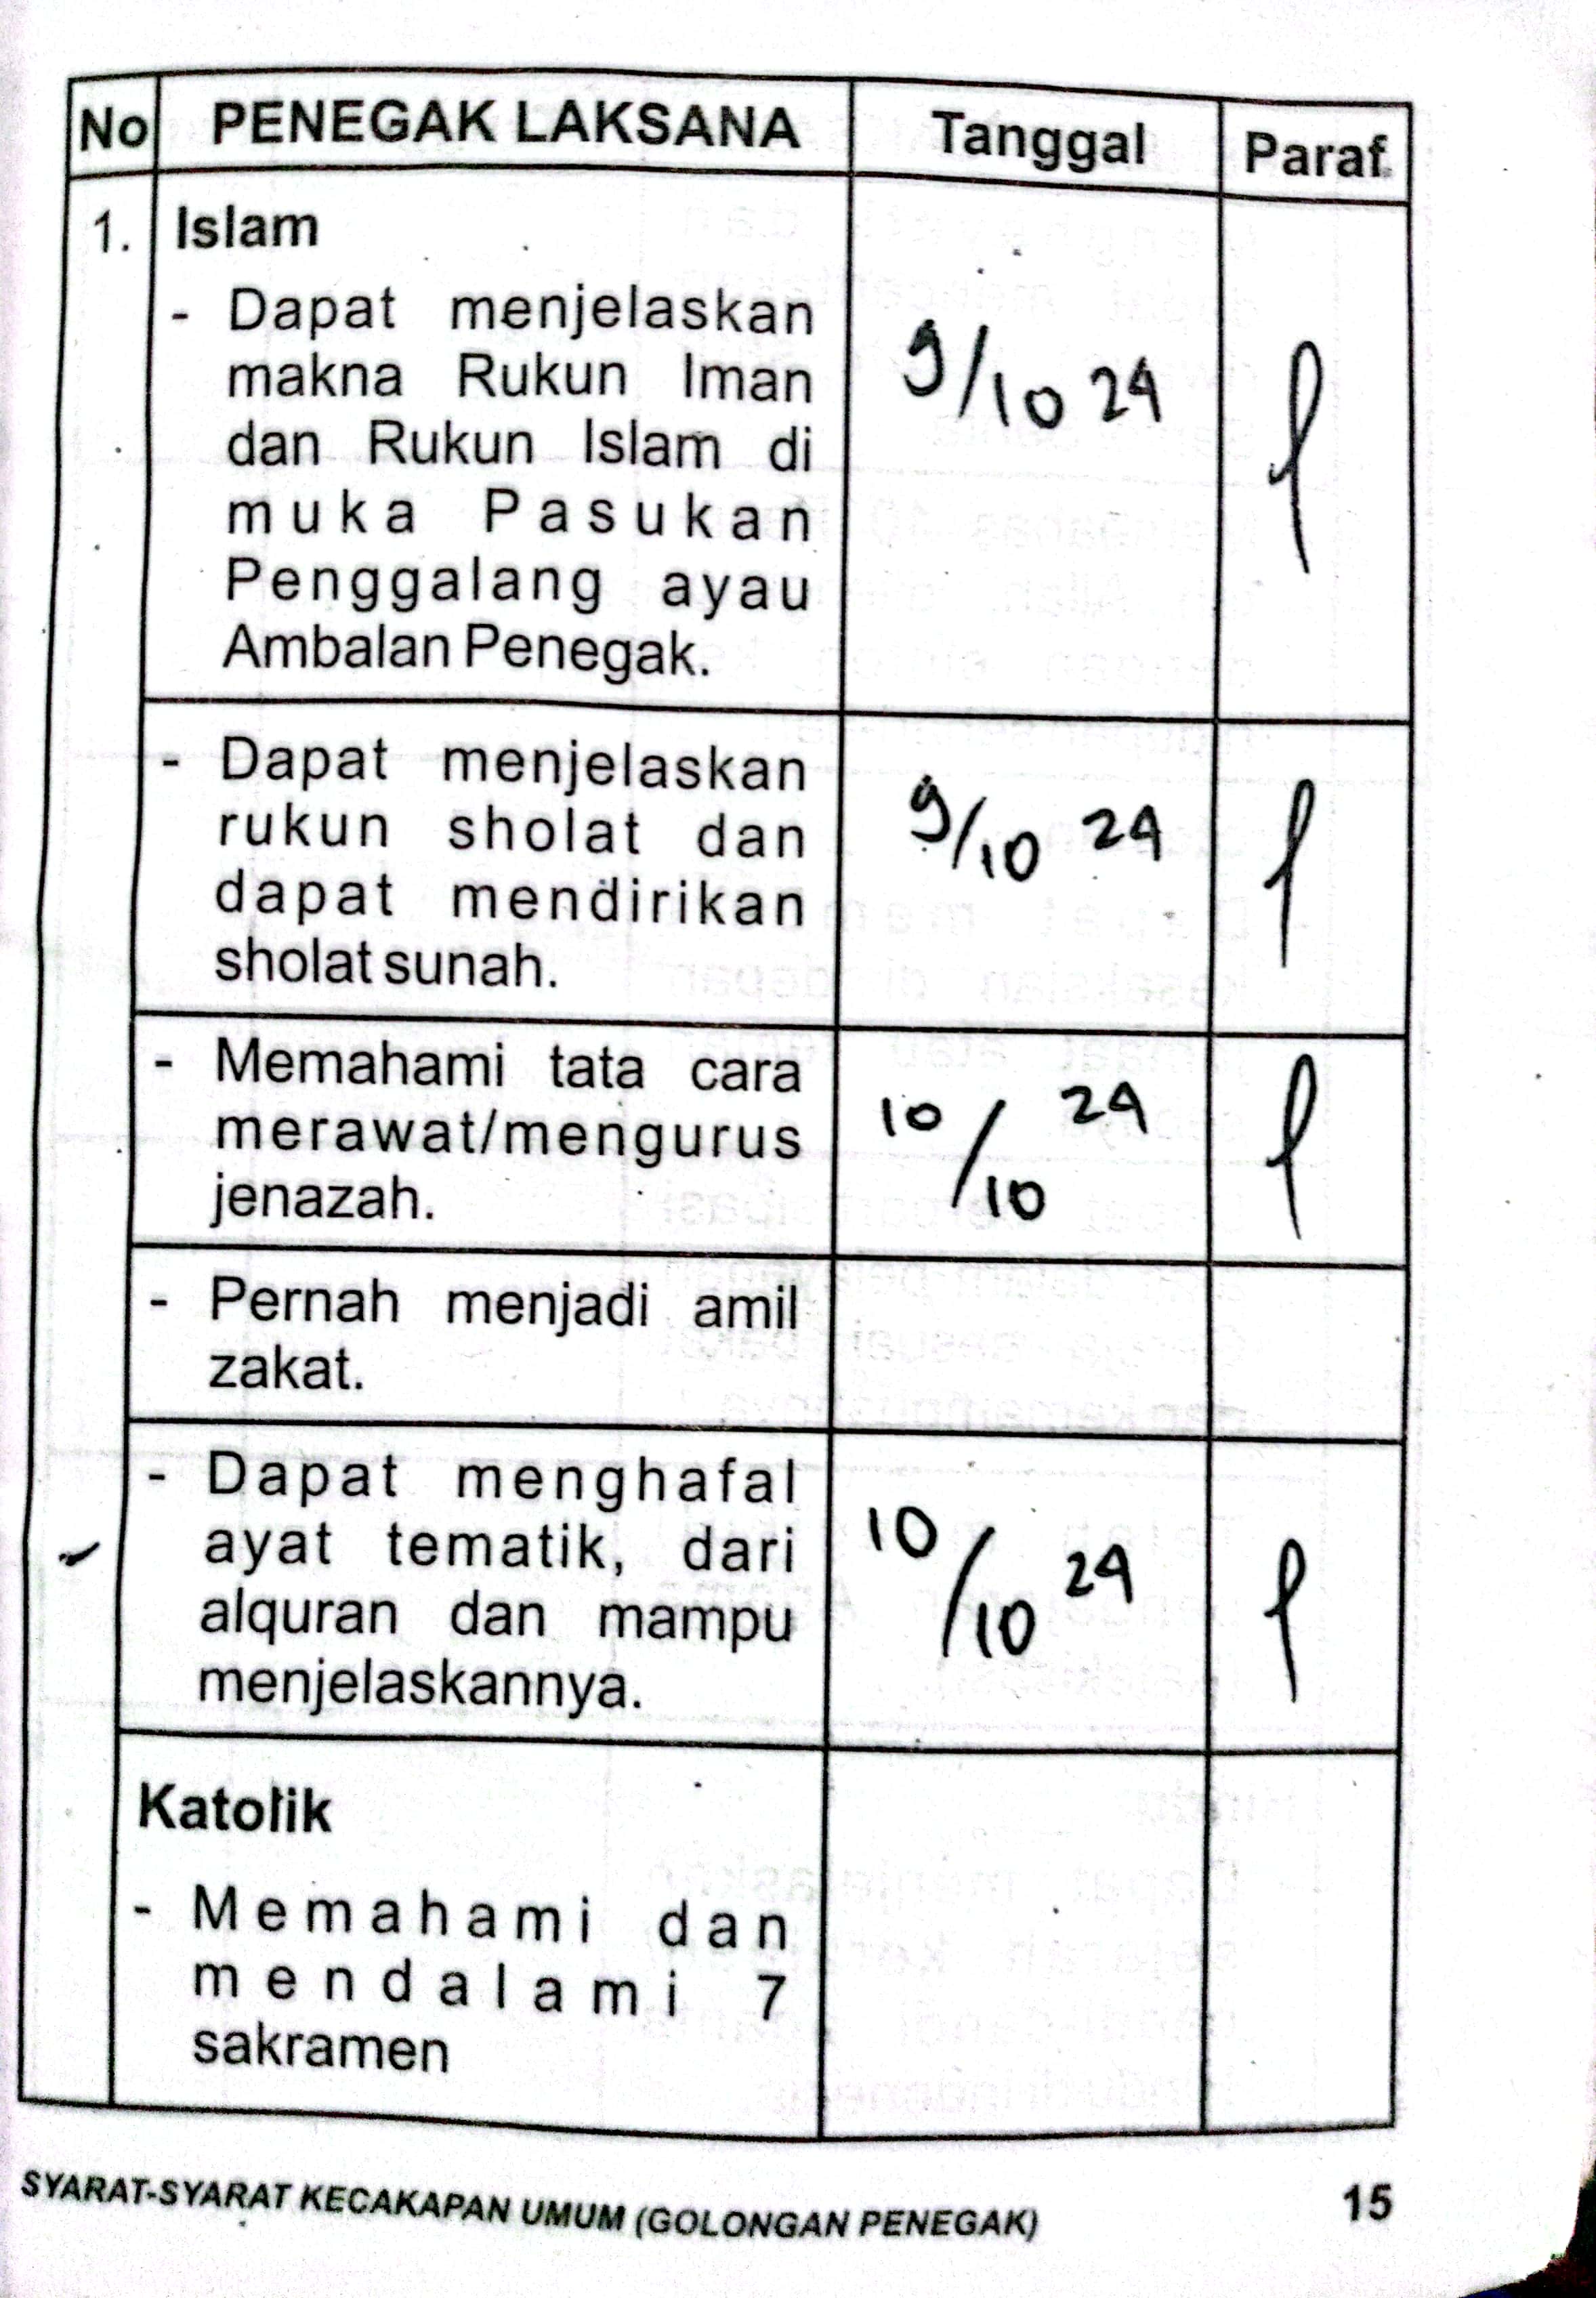 No PENEGAK LAKSANA Tanggal Paraf
1. Islam
- Dapat menjelaskan
makna Rukun Iman
dan Rukun Islam di
muka Pasukan
Penggalang ayau
Ambalan Penegak.
9/10 24
- Dapat menjelaskan
rukun sholat dan
dapat mendirikan
sholat sunah.
9/10 24
- Memahami tata cara
merawat/mengurus
jenazah.
10/10 24
- Pernah menjadi amil
zakat.
- Dapat menghafal
ayat tematik, dari
alquran dan mampu
menjelaskannya.
10/10 24
Katolik
- Memahami dan
mendalami 7
sakramen
SYARAT-SYARAT KECAKAPAN UMUM (GOLONGAN PENEGAK) 15